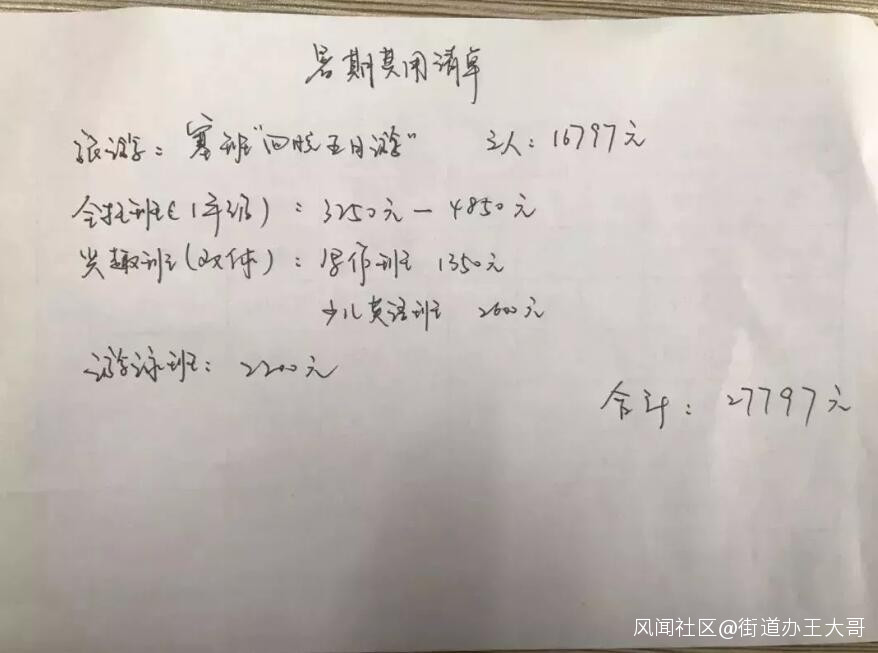 暑期费用清单
旅游: 塞班"四晚五日游" 三人: 16797元
全托班(1年级): 3250元-4850元
兴趣班(文体): 写作班 1350元
少儿英语班 2600元
游泳班: 2200元
合计: 27797元
风闻社区@街道办王大哥